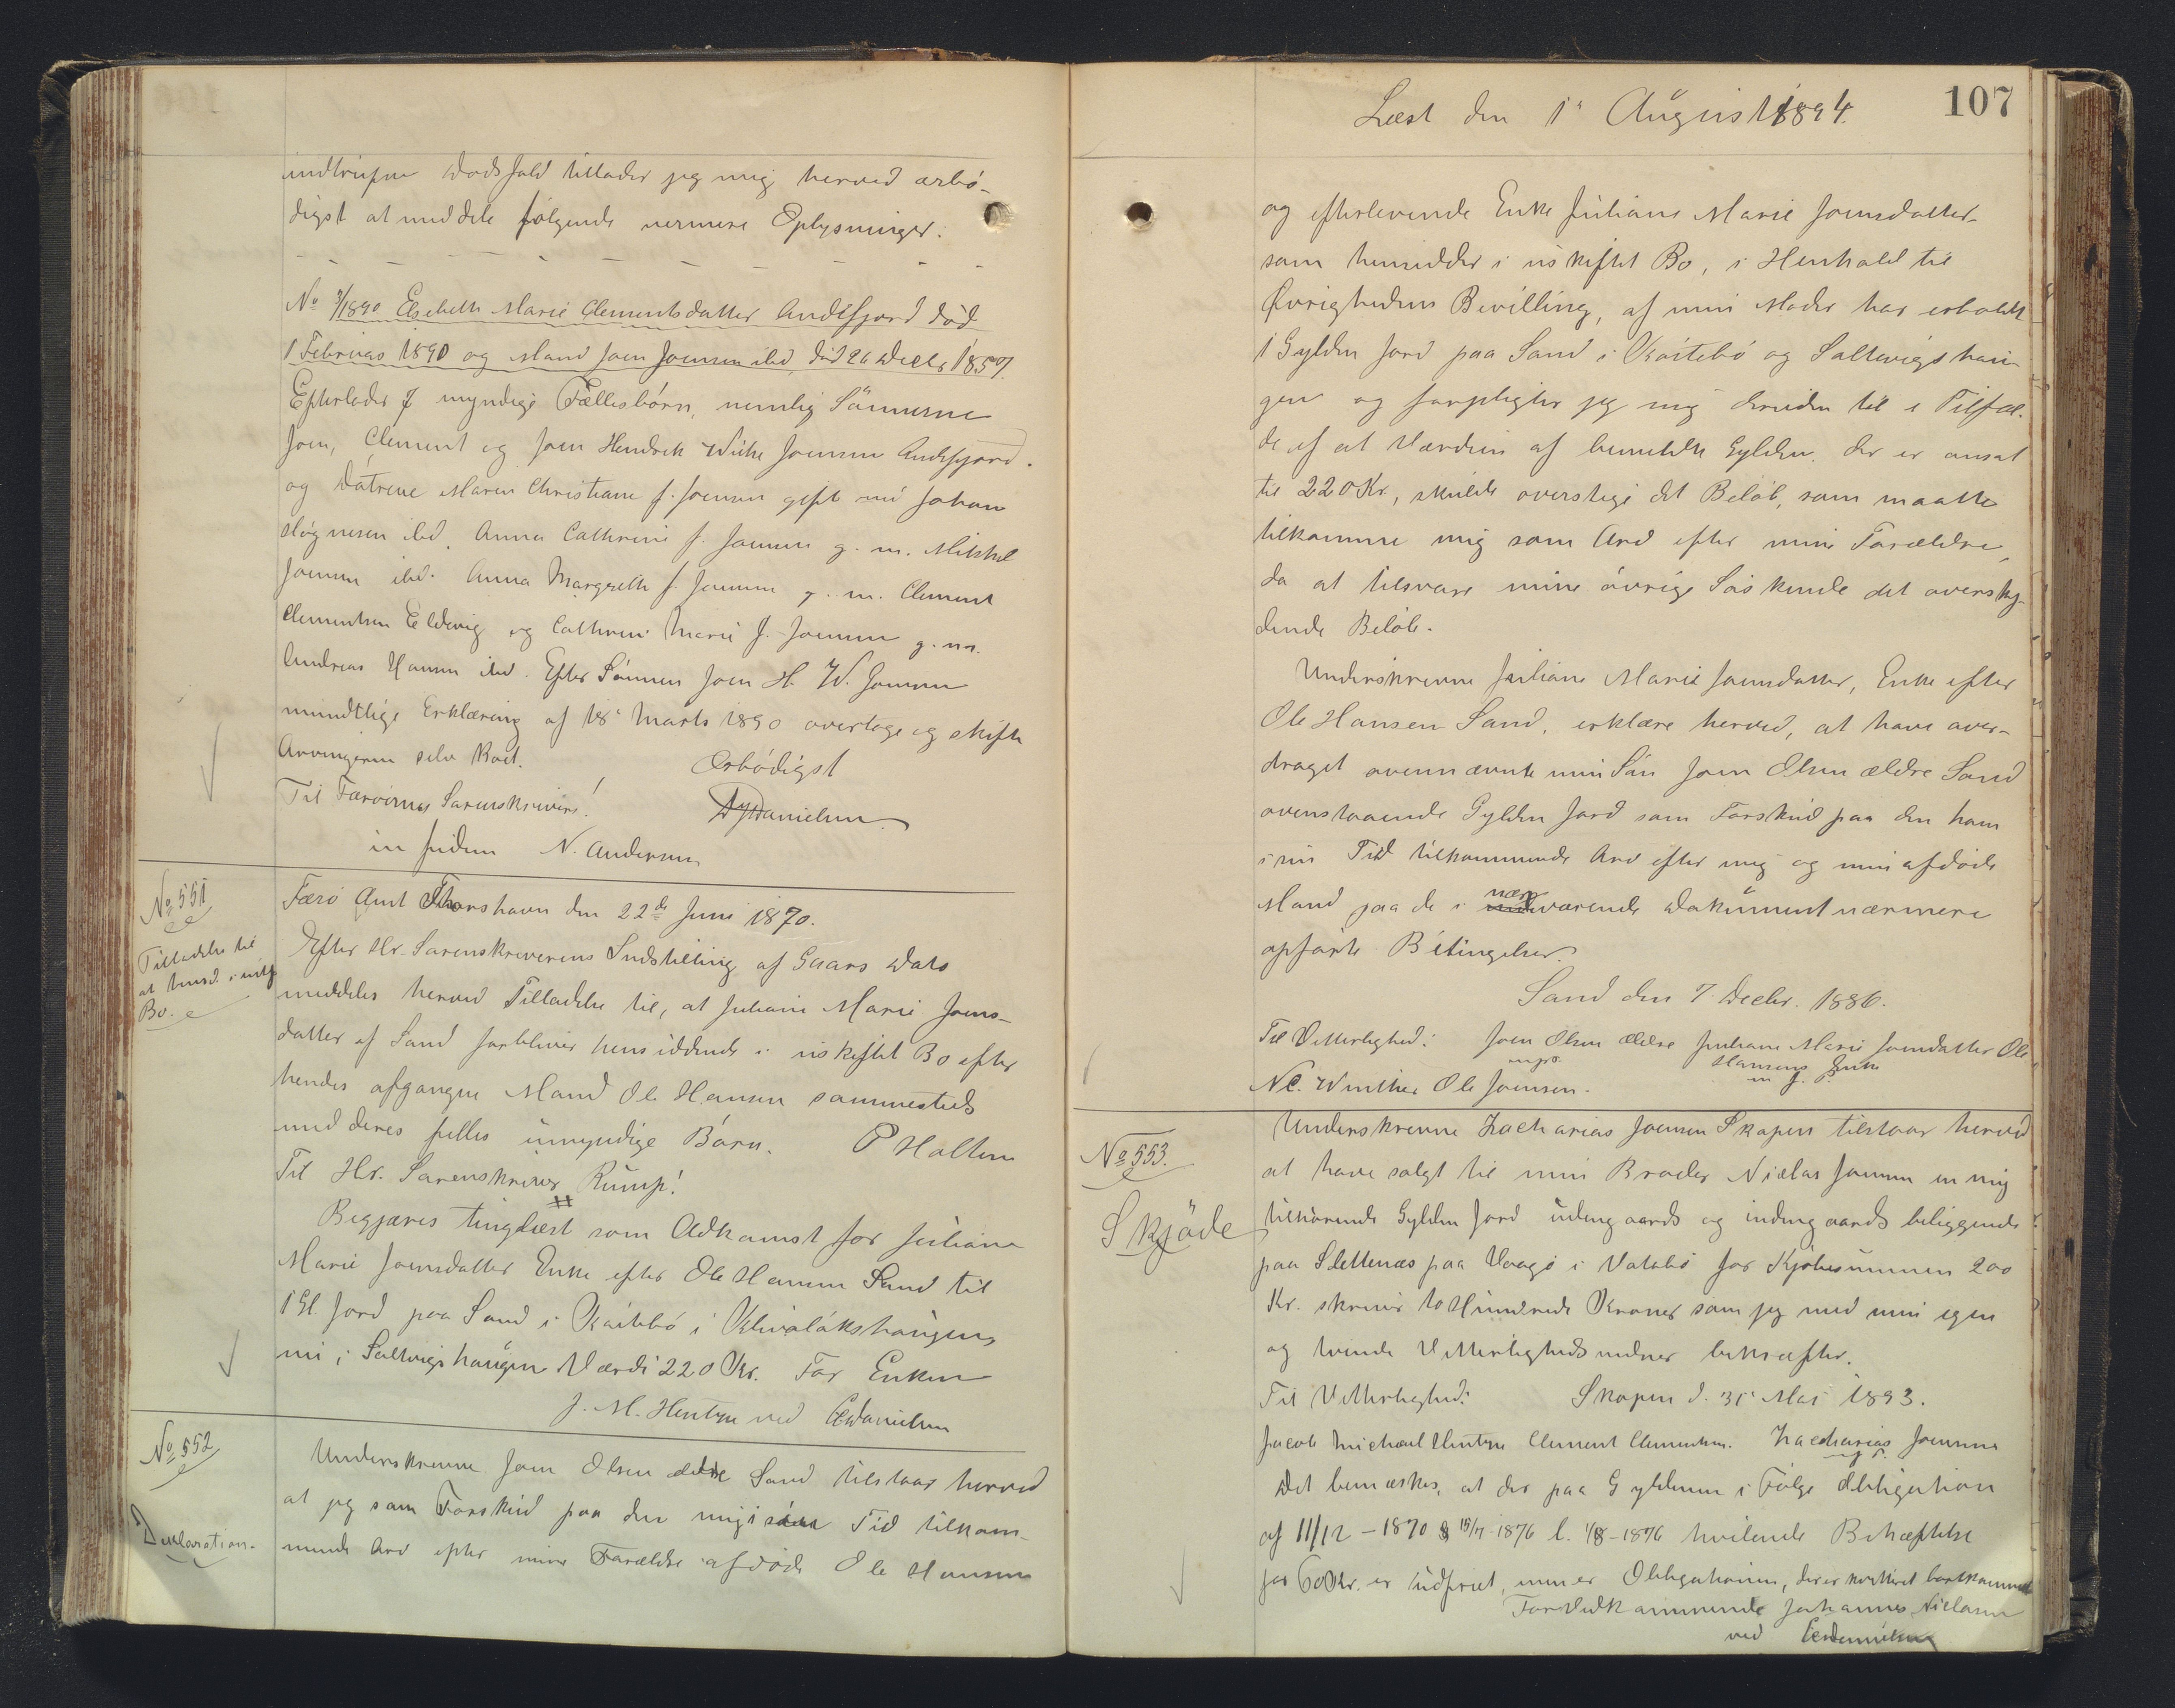 indtrufne Dødsfald tillader jeg mig herved ærbø-
digst at meddele følgende nermere Oplysninger.
No 3/1890 Elsebeth Marie Clementsdatter Andefjord død
1 Februar 1890 og Mand Joen Joensen ibd. død 26 Decbr 1857.
Efterlader 7 myndige Fællesbørn, nemlig Sönnerne
Joen, Clement og Joen Hendrek Wiihe Joensen Andefjord.
og Døtrene Maren Christiane f. Joensen gift m. Johan
Høgnesen ibd. Anna Cathrine f. Joensen g. m. Mikkel
Joensen ibd. Anna Margrethe f. Joensen g. m. Clement
Clementsen Eldevig og Cathrine Marie f. Joensen g. m.
Andreas Hansen ibd. Efter Sønnen Joen H. W. Joensen
mundtlige Erklæring af 18 Marts 1890 overtage og skifte
Arvingerne selv Boet.
Ærbødigst
Til Færøernes Sorenskriveri!
Danielsen
in fidem N. Andersen
No 551
Tilladelse til
at hensd. i uskift
Bo.
Færö Amt Thorshavn den 22de Juni 1870.
Efter Hr. Sorenskriverens Indstilling af Gaars Dato
meddeles herved Tilladelse til, at Juliane Marie Joens-
datter af Sand forbliver hensiddende i uskiftet Bo efter
hendes afgangne Mand Ole Hansen sammesteds
med deres fælles umyndige Børn. P Holten
Til Hr. Sorenskriver Rump!
Begjæres tinglæst som Adkomst for Juliane
Marie Joensdatter Enke efter Ole Hansen Sand til
1 Gl. Jord paa Sand i
ni i Saltvigs haugen Værdi 220 Kr. For Enken
J. M. Hentze ved Danielsen
No 552
Declaration.
Underskrevne Joen Olsen ældre Sand tilstaar herved
at jeg som Forskud paa den mig i sin Tid tilkom-
mende Arv efter mine Forældre afdöde Ole Hansen
107
Læst den 1ª August 1894.
og efterlevende Enke Juliane Marie Joensdatter
som hensidder i uskiftet Bo, i Henhold til
Øvrighedens Bevilling, af min Moder har erholdt
1 Gylden Jord paa Sand i og Saltvigs hau-
gen og forpligter jeg mig desuden til i Tilfæl-
de af at Værdien af bemeldte Gylden, der er ansat
til 220 Kr., skulde overstige det Beløb, som maatte
tilkomme mig som Arv efter mine Forældre,
da at tilsvare mine øvrige Søskende det oversky-
dende Beløb.
Underskrevne Juliane Marie Joensdatter, Enke efter
Ole Hansen Sand, erklære herved, at have over-
draget ovennævnte min Søn Joen Olsen ældre Sand
ovenstaaende Gylden Jord som Forskud paa den ham
i sin Tid tilkommende Arv efter mig og min afdøde
Mand paa de i nærværende Dokument nærmere
opførte Betingelser.
Sand den 7 Decbr. 1886.
Til Vitterlighed: Joen Olsen ældre Juliane Marie Joensdatter Ole
mpo. Hansens Enke
m. f. P.
N.C. Winther Ole Joensen.
No 553.
Skjöde
Underskrevne Zacharias Joensen Skopen tilstaar herved
at have solgt til min Broder Niclas Joensen en mig
tilhørende Gylden Jord udengaards og indengaards beliggende
paa Slettenæs paa Vaagø i Vatsbø for Kjøbesummen 200
Kr. skriver to Hundrede Kroner som jeg med min egen
og tvende Vitterligheds mdner bekræfter.
Til Vitterlighed: Skopen d. 31 Mai 1893.
Jacob Michael Hentze Clement Clementsen. Zacharias Joensen
Det bemærkes, at der paa Gyldenen i Følge Obligation
af 11/12 - 1870 & 15/7 - 1876 l. 1/8 - 1876 hvilende Behæftelse
for 600 Kr. er udfriet, men er Obligationen, der er kvitteret bortkommet
For Vedkommende Johannes Nielsen
ved Danielsen